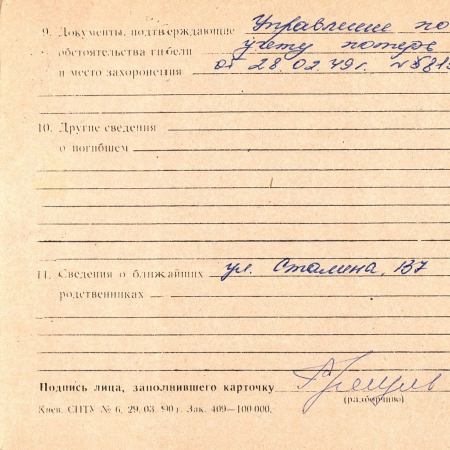 9. Документы, подтверждающие Управление по
обстоятельства гибели учету потерь
и место захоронения от 28.02.49г.
10. Другие сведения
о погибшем
11. Сведения о ближайших ул. Сталина, 137
родственниках
Подпись лица, заполнившего карточку
(разборчиво)
Киев. СПТУ № 6, 29. 03. 90 г. Зак. 409—100 000.